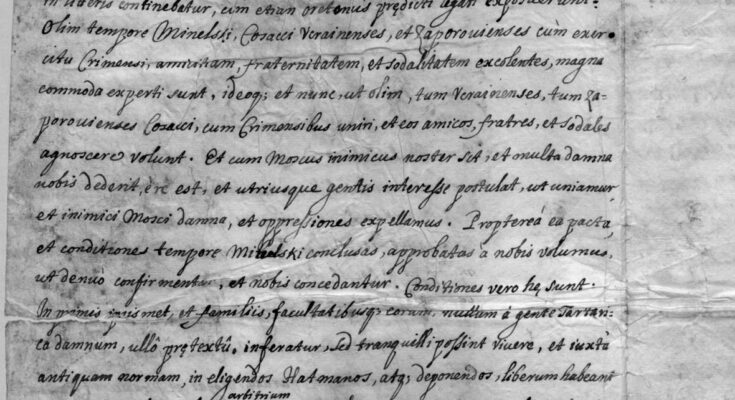 in literis continebatur, cum etiam oretenus prędicti agari exposuerunt.
Olim tempore Minelski, Cosacci Vcrainenses, et Zaporouienses cùm exer-
citu Crimensi, amicitiam, fraternitatem, et sodalitatem excolentes, magna
commoda experti sunt, ideoq; et nunc, ut olim, tum Vcrainenses, tum Za-
porouienses Cosacci, cum Crimensibus uniri, et eos amicos, fratres, et sodales
agnoscere volunt. Et cum Moscus inimicus noster sit, et multa damna
nobis dederit, è re est, et utriusque gentis interesse postulat, ut uniamur
et inimici Mosci damna, et oppressiones expellamus. Proptereà ea pacta,
et conditiones tempore Mihelski conclusas, approbatas a nobis volumus,
ut denuò confirmentur, et nobis concedantur. Conditiones vero hę sunt.
In primis ipsismet, et familiis, facultatibusq; eorum, nullum à gente Tartari-
ca damnum, ullô prętextû, inferatur, sed tranquilli possint vivere, et iuxtà
antiquam normam, in eligendos Hatmanos, atq; deponendos, liberum habeant
arbitrium